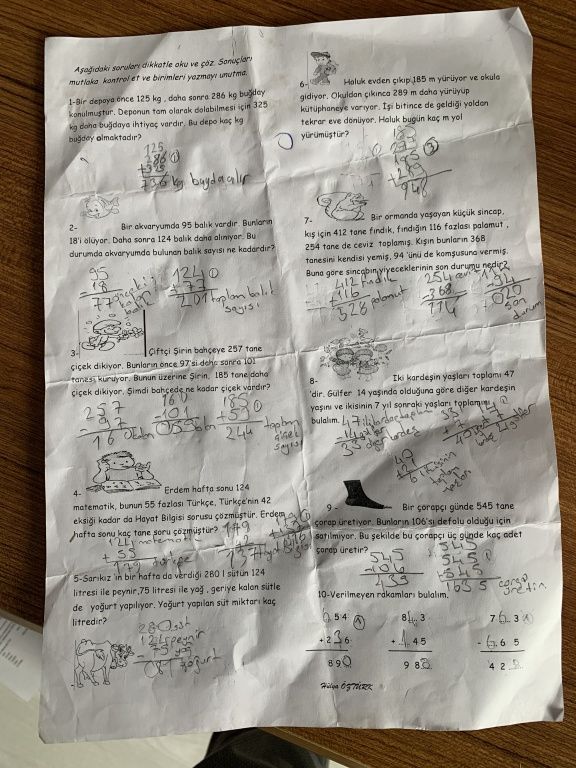 Aşağıdaki soruları dikkatle oku ve çöz. Sonuçları
mutlaka kontrol et ve birimleri yazmayı unutma.
1-Bir depoya önce 125 kg , daha sonra 286 kg buğday
konulmuştur. Deponun tam olarak dolabilmesi için 325
kg daha buğdaya ihtiyaç vardır. Bu depo kaç kg
buğday almaktadır?
125
286
+325
736 kg buğday alır
2- Bir akvaryumda 95 balık vardır. Bunların
18'i ölüyor. Daha sonra 124 balık daha alınıyor. Bu
durumda akvaryumda bulunan balık sayısı ne kadardır?
95
18
77
124
+ 77
201 toplam balık
sayısı
3- Çiftçi Şirin bahçeye 257 tane
çiçek dikiyor. Bunların önce 97'si daha sonra 101
tanesi kuruyor. Bunun üzerine Şirin, 185 tane daha
çiçek dikiyor. Şimdi bahçede ne kadar çiçek vardır?
257
- 97
160
101
059
185
+ 59
244 toplam
çiçek
sayısı
4- Erdem hafta sonu 124
matematik, bunun 55 fazlası Türkçe, Türkçe'nin 42
eksiği kadar da Hayat Bilgisi sorusu çözmüştür. Erdem
hafta sonu kaç tane soru çözmüştür?
124 matematik
+ 55
179 türkçe
179
137
5-Sarıkız 'ın bir hafta da verdiği 280 l sütün 124
litresi ile peynir,75 litresi ile yağ , geriye kalan sütle
de yoğurt yapılıyor. Yoğurt yapılan süt miktarı kaç
litredir?
280 süt
124 peynir
75 yağ
081 yoğurt
6- Haluk evden çıkıp,185 m yürüyor ve okula
gidiyor. Okuldan çıkınca 289 m daha yürüyüp
kütüphaneye varıyor. İşi bitince de geldiği yoldan
tekrar eve dönüyor. Haluk bugün kaç m yol
yürümüştür?
948
7- Bir ormanda yaşayan küçük sincap,
kış için 412 tane fındık, fındığın 116 fazlası palamut ,
254 tane de ceviz toplamış. Kışın bunların 368
tanesini kendisi yemiş, 94 'ünü de komşusuna vermiş.
Buna göre sincabın yiyeceklerinin son durumu nedir?
412 fındık
+ 116
528 palamut
254
368
114
94
020
son
durum
8- İki kardeşin yaşları toplamı 47
'dir. Gülfer 14 yaşında olduğuna göre diğer kardeşin
yaşını ve ikisinin 7 yıl sonraki yaşları toplamını
bulalım.
47
- 14
33 diğer kardeş
33
+ 7
40
9 - Bir çorapçı günde 545 tane
çorap üretiyor. Bunların 106'sı defolu olduğu için
satılmıyor. Bu şekilde bu çorapçı üç günde kaç adet
çorap üretir?
545
106
439
545
545
+545
1635 çorap
üretir
10-Verilmeyen rakamları bulalım.
654 8 3 7 3
+ 236 + 45 - 6 5
890 988 42
Hülya ÖZTÜRK